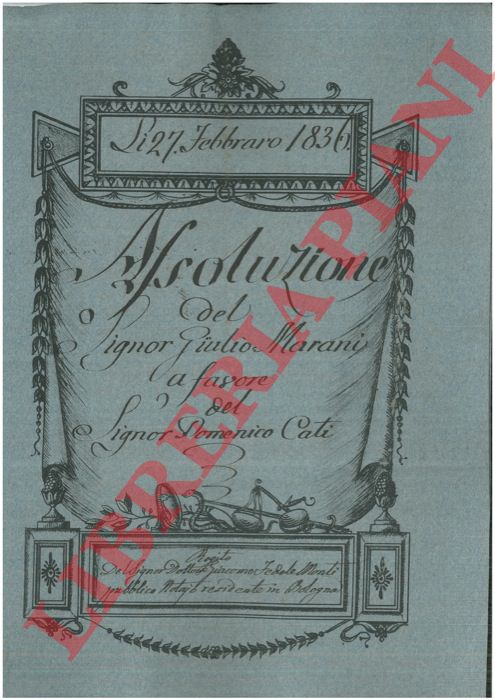 Li 27. Febbraro 1836.
Assoluzione
del
Signor Giulio Marani
a favore
del
Signor Domenico Cati
Rogito
Del Signor Dottor Giacomo Fedele Monti
pubblico Notajo residente in Bologna
LIBRERIA PIANI